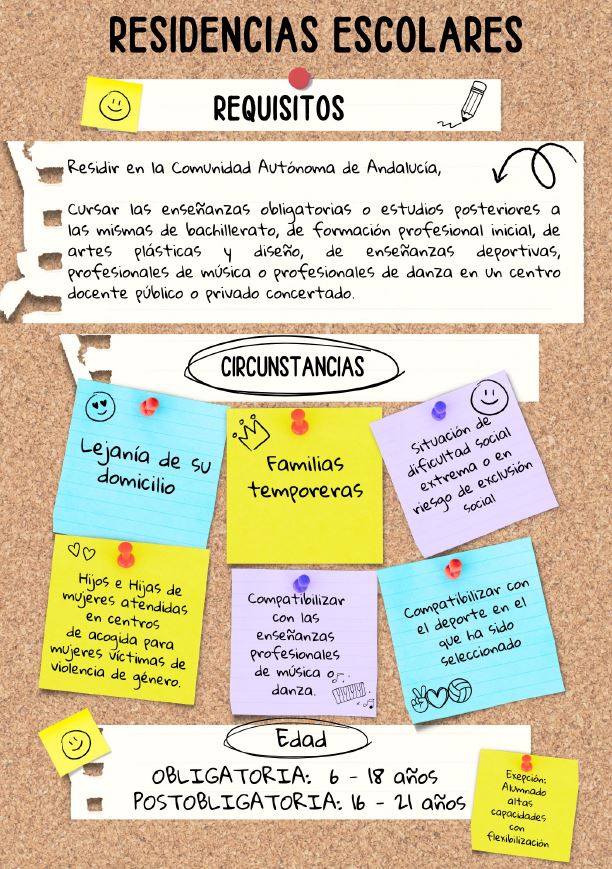 RESIDENCIAS ESCOLARES
REQUISITOS
Residir en la Comunidad Autónoma de Andalucía,
Cursar las enseñanzas obligatorias o estudios posteriores a
las mismas de bachillerato, de formación profesional inicial, de
artes plásticas y diseño, de enseñanzas deportivas,
profesionales de música o profesionales de danza en un centro
docente público o privado concertado.
CIRCUNSTANCIAS
Lejanía de su
domicilio
Familias
temporeras
Situación de
dificultad social
extrema o en
riesgo de exclusión
social
Hijos e Hijas de
mujeres atendidas
en centros
de acogida para
mujeres víctimas de
violencia de género.
Compatibilizar
con las
enseñanzas
profesionales
de música o
danza.
Compatibilizar con
el deporte en el
que ha sido
seleccionado
Edad
OBLIGATORIA: 6 - 18 años
POSTOBLIGATORIA: 16 - 21 años
Exepción:
Alumnado
altas
capacidades
con
flexibilización